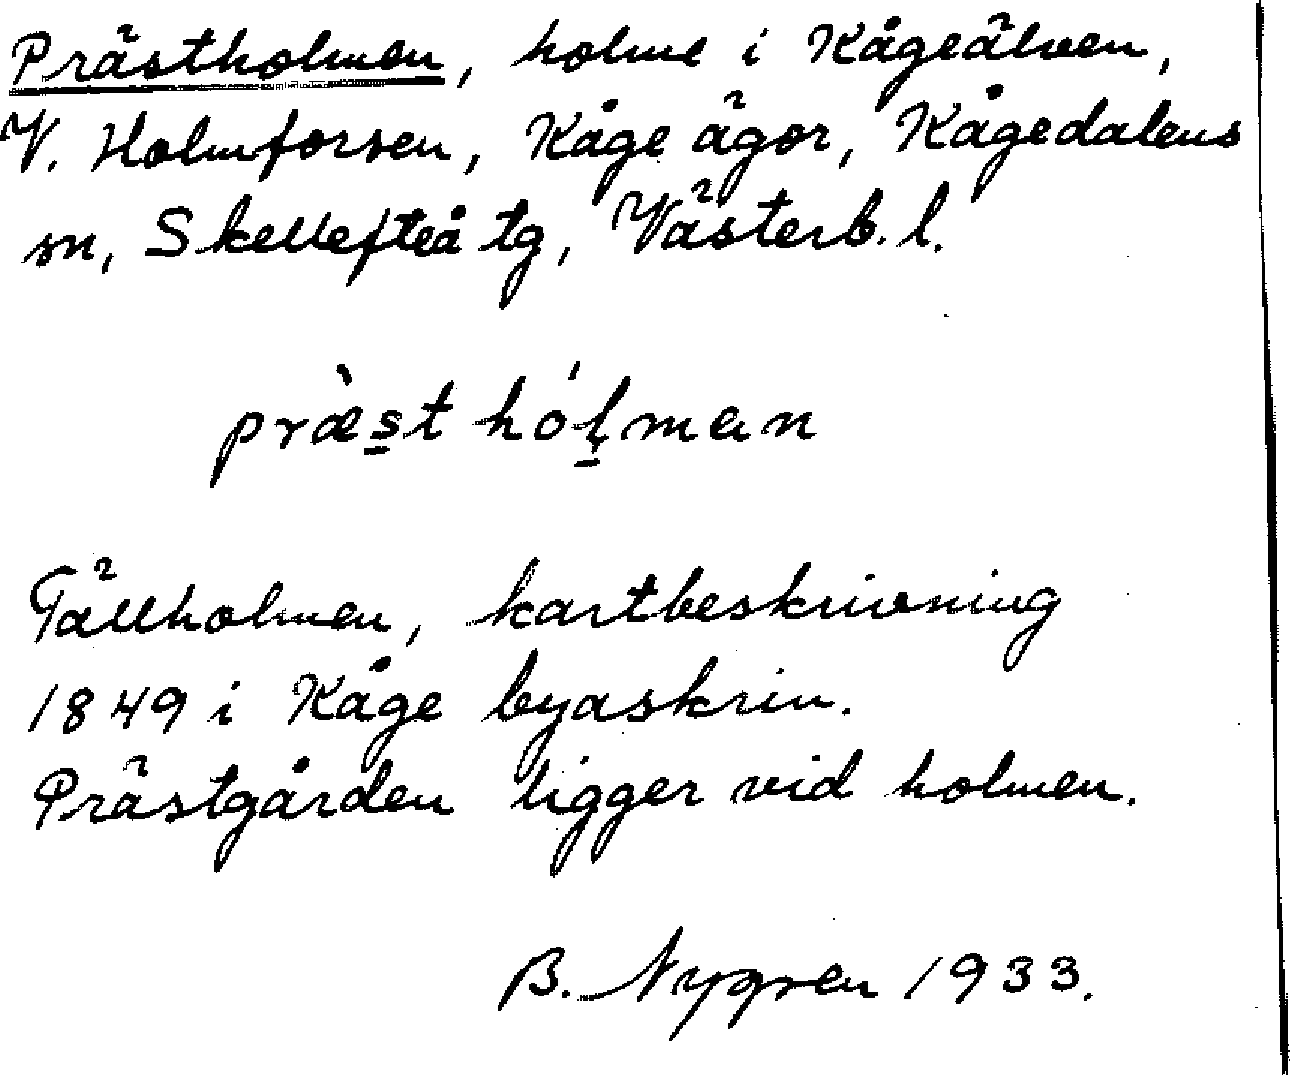 Prästholmen, holme i Kågeälven,
V. Holmforsen, Kåge ägor, Kågedalens
sn, Skellefteå tg, Västerb. l.
præ̀st hól̥man
Tällholmen, kartbeskrivning
1849 i Kåge byaskrin.
Prästgården ligger vid holmen.
B. Nygren 1933.